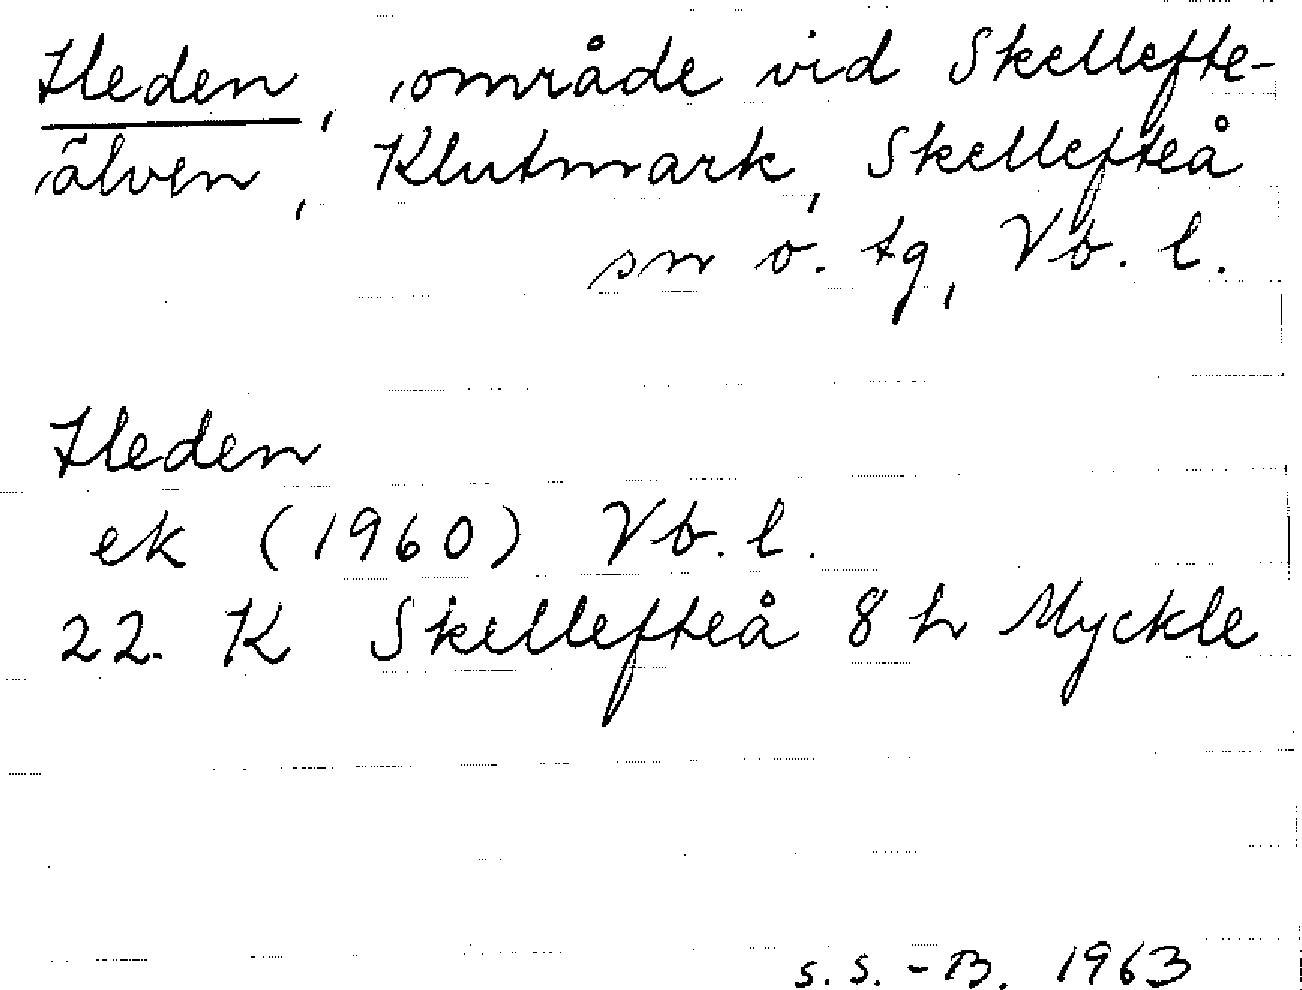 Heden, område vid Skellefte-
älven, Klutmark, Skellefteå
sn o. tg, Vb. l.
Heden
ek (1960) Vb. l.
22. K Skellefteå 8 h Myckle
S. S. - B. 1963